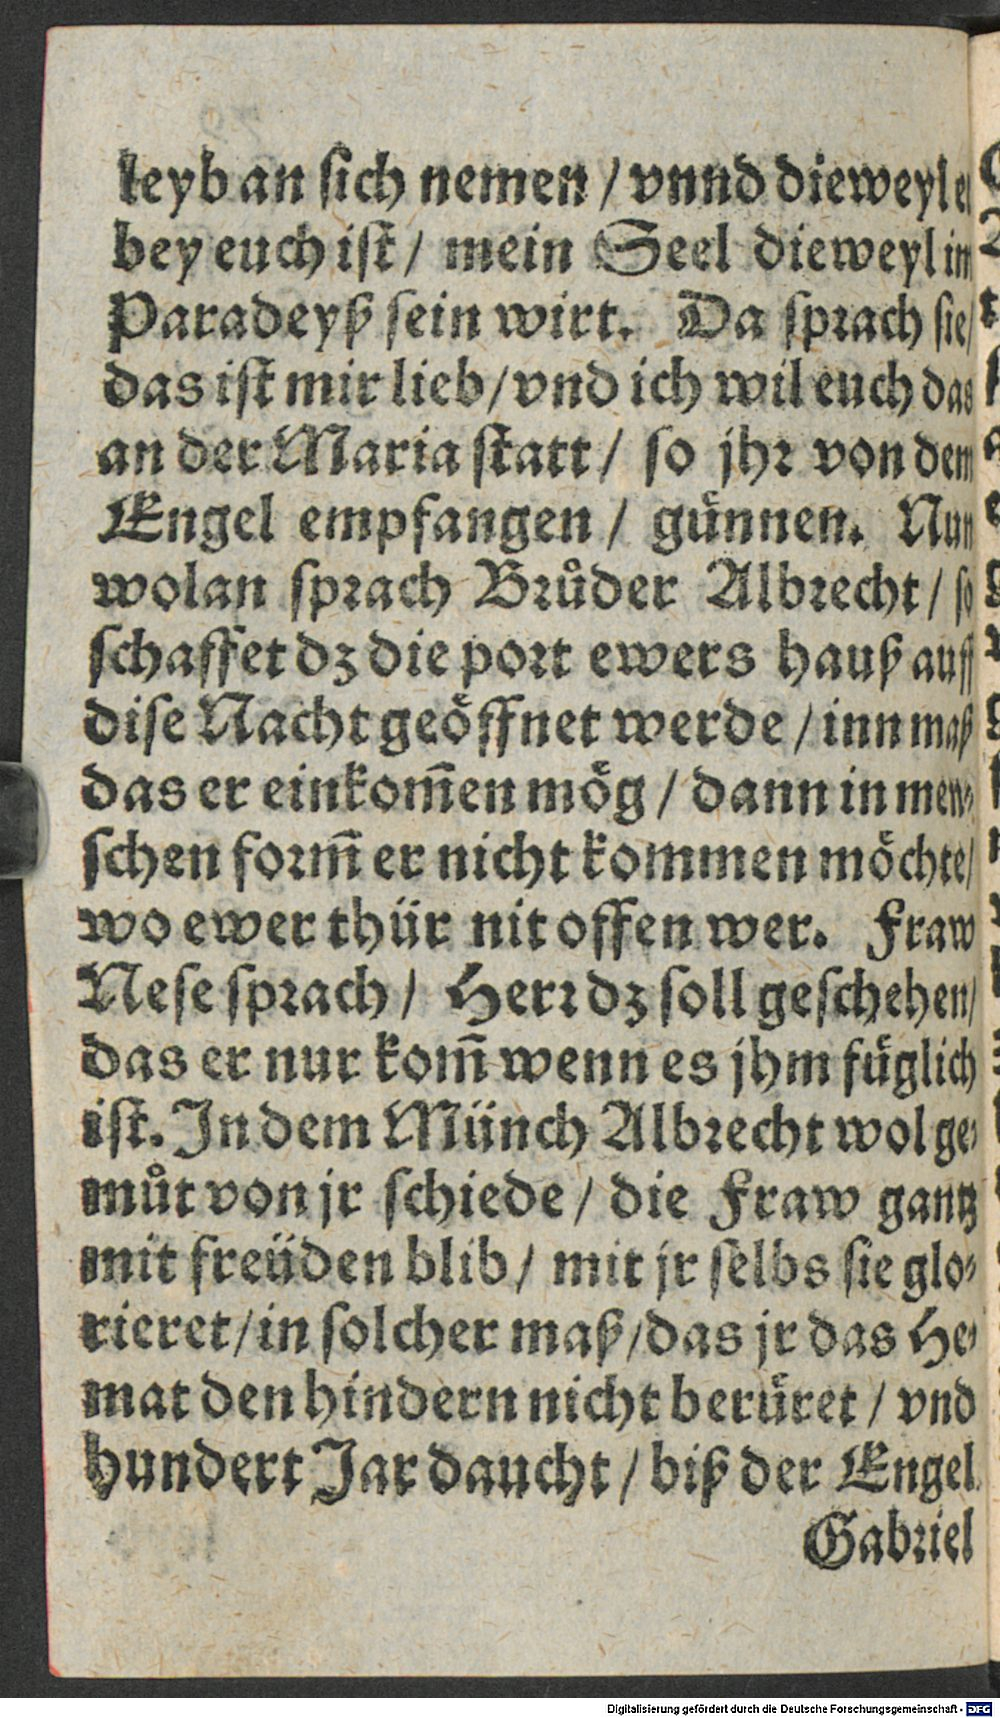 leyb an sich nemen / vnnd dieweyl er
bey euch ist / mein Seel dieweyl im
Paradeyß sein wirt. Da sprach sie /
das ist mir lieb / vnd ich wil euch das
an der Maria statt / so jhr von dem
Engel empfangen / günnen. Nun
wolan sprach Brůder Albrecht / so
schaffet dz die port ewers hauß auff
dise Nacht geöffnet werde / inn maß
das er einkom̃en mög / dann in men⸗
schen form̃ er nicht kommen möchte /
wo ewer thür nit offen wer. Fraw
Nese sprach / Herr dz soll geschehen /
das er nur kom̃ wenn es jhm füglich
ist. In dem Münch Albrecht wol ge⸗
můt von jr schiede / die Fraw gantz
mit freüden blib / mit jr selbs sie glo⸗
rieret / in solcher maß / das jr das He⸗
mat den hindern nicht berüret / vnd
hundert Jar daucht / biß der Engel
Gabriel
Digitalisierung gefördert durch die Deutsche Forschungsgemeinschaft - DFG